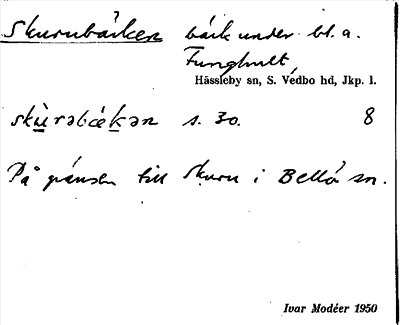 Skurubäcken bäck under bl.a.
Ljunghult,
Hässleby sn, S. Vedbo hd, Jkp. l.
skùrəbäkən s. 30. 8
På gränsen till Skuru i Bellö sn.
Ivar Modéer 1950